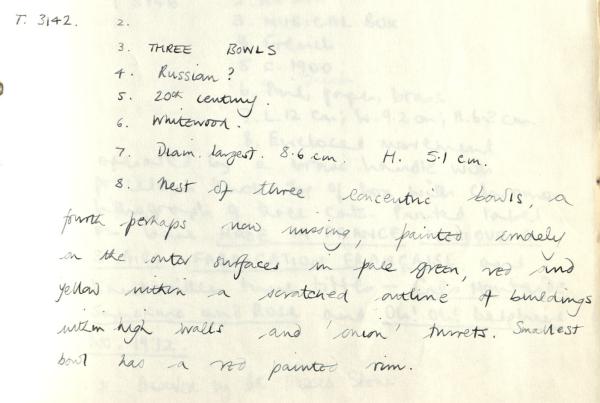 T. 3142. 2.
3. THREE BOWLS
4. Russian?
5. 20th century.
6. Whitewood.
7. Diam. largest. 8.6 cm. H. 5.1 cm.
8. Nest of three concentric bowls, a
fourth perhaps now missing, painted crudely
on the outer surfaces in pale green, red and
yellow within a scratched outline of buildings
within high walls and 'onion' turrets. Smallest
bowl has a red painted rim.